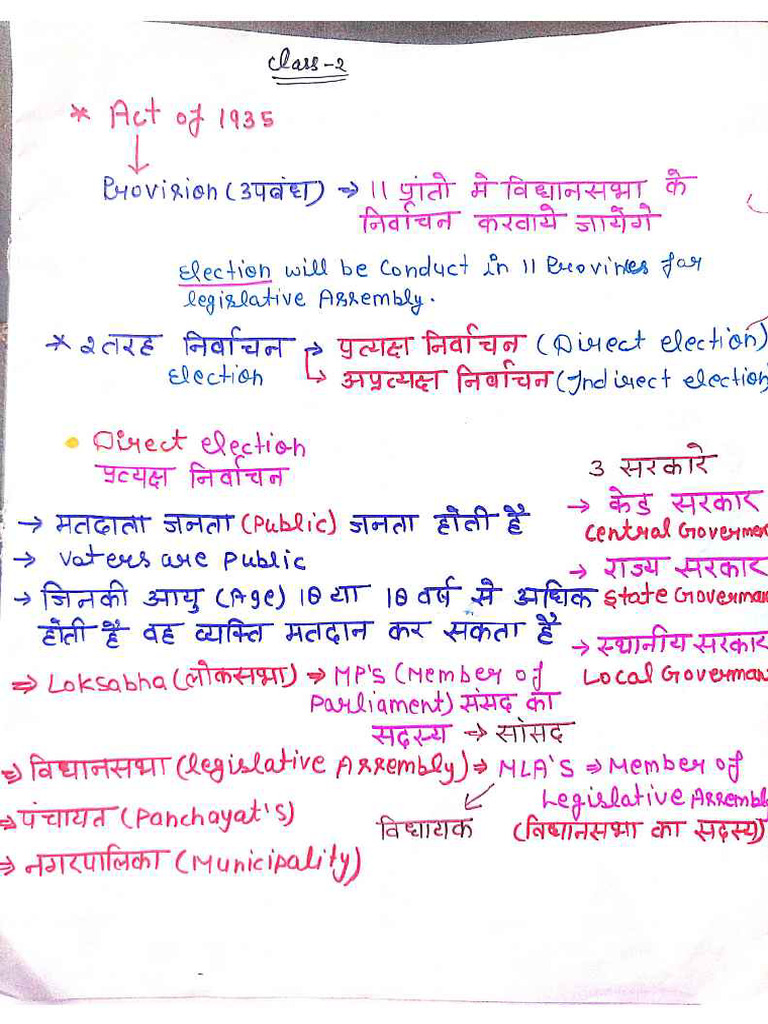 Class-2
* Act of 1935
Provision (उपबंध) → 11 प्रांतो मे विधानसभा के
निर्वाचन करवाये जायेंगे
Election will be Conduct in 11 Provines for
legislative Assembly.
* 2 तरह निर्वाचन → प्रत्यक्ष निर्वाचन (Direct election)
Election → अप्रत्यक्ष निर्वाचन (Indirect election)
• Direct election
प्रत्यक्ष निर्वाचन
→ मतदाता जनता (Public) जनता होती है
→ Voters are Public
→ जिनकी आयु (Age) 18 या 18 वर्ष से अधिक
होती है वह व्यक्ति मतदान कर सकता है
3 सरकारे
→ केंद्र सरकार
Central Governmen
→ राज्य सरकार
State Governman
→ स्थानीय सरकार
Local Governman
⇒ Loksabha (लोकसभा) ⇒ MP's (Member of
Parliament) संसद का
सदस्य → सांसद
⇒ विधानसभा (legislative Assembly) ⇒ MLA'S ⇒ Member of
Legislative Assembly
⇒ पंचायत (Panchayat's)
विधायक (विधानसभा का सदस्य)
⇒ नगरपालिका (Municipality)